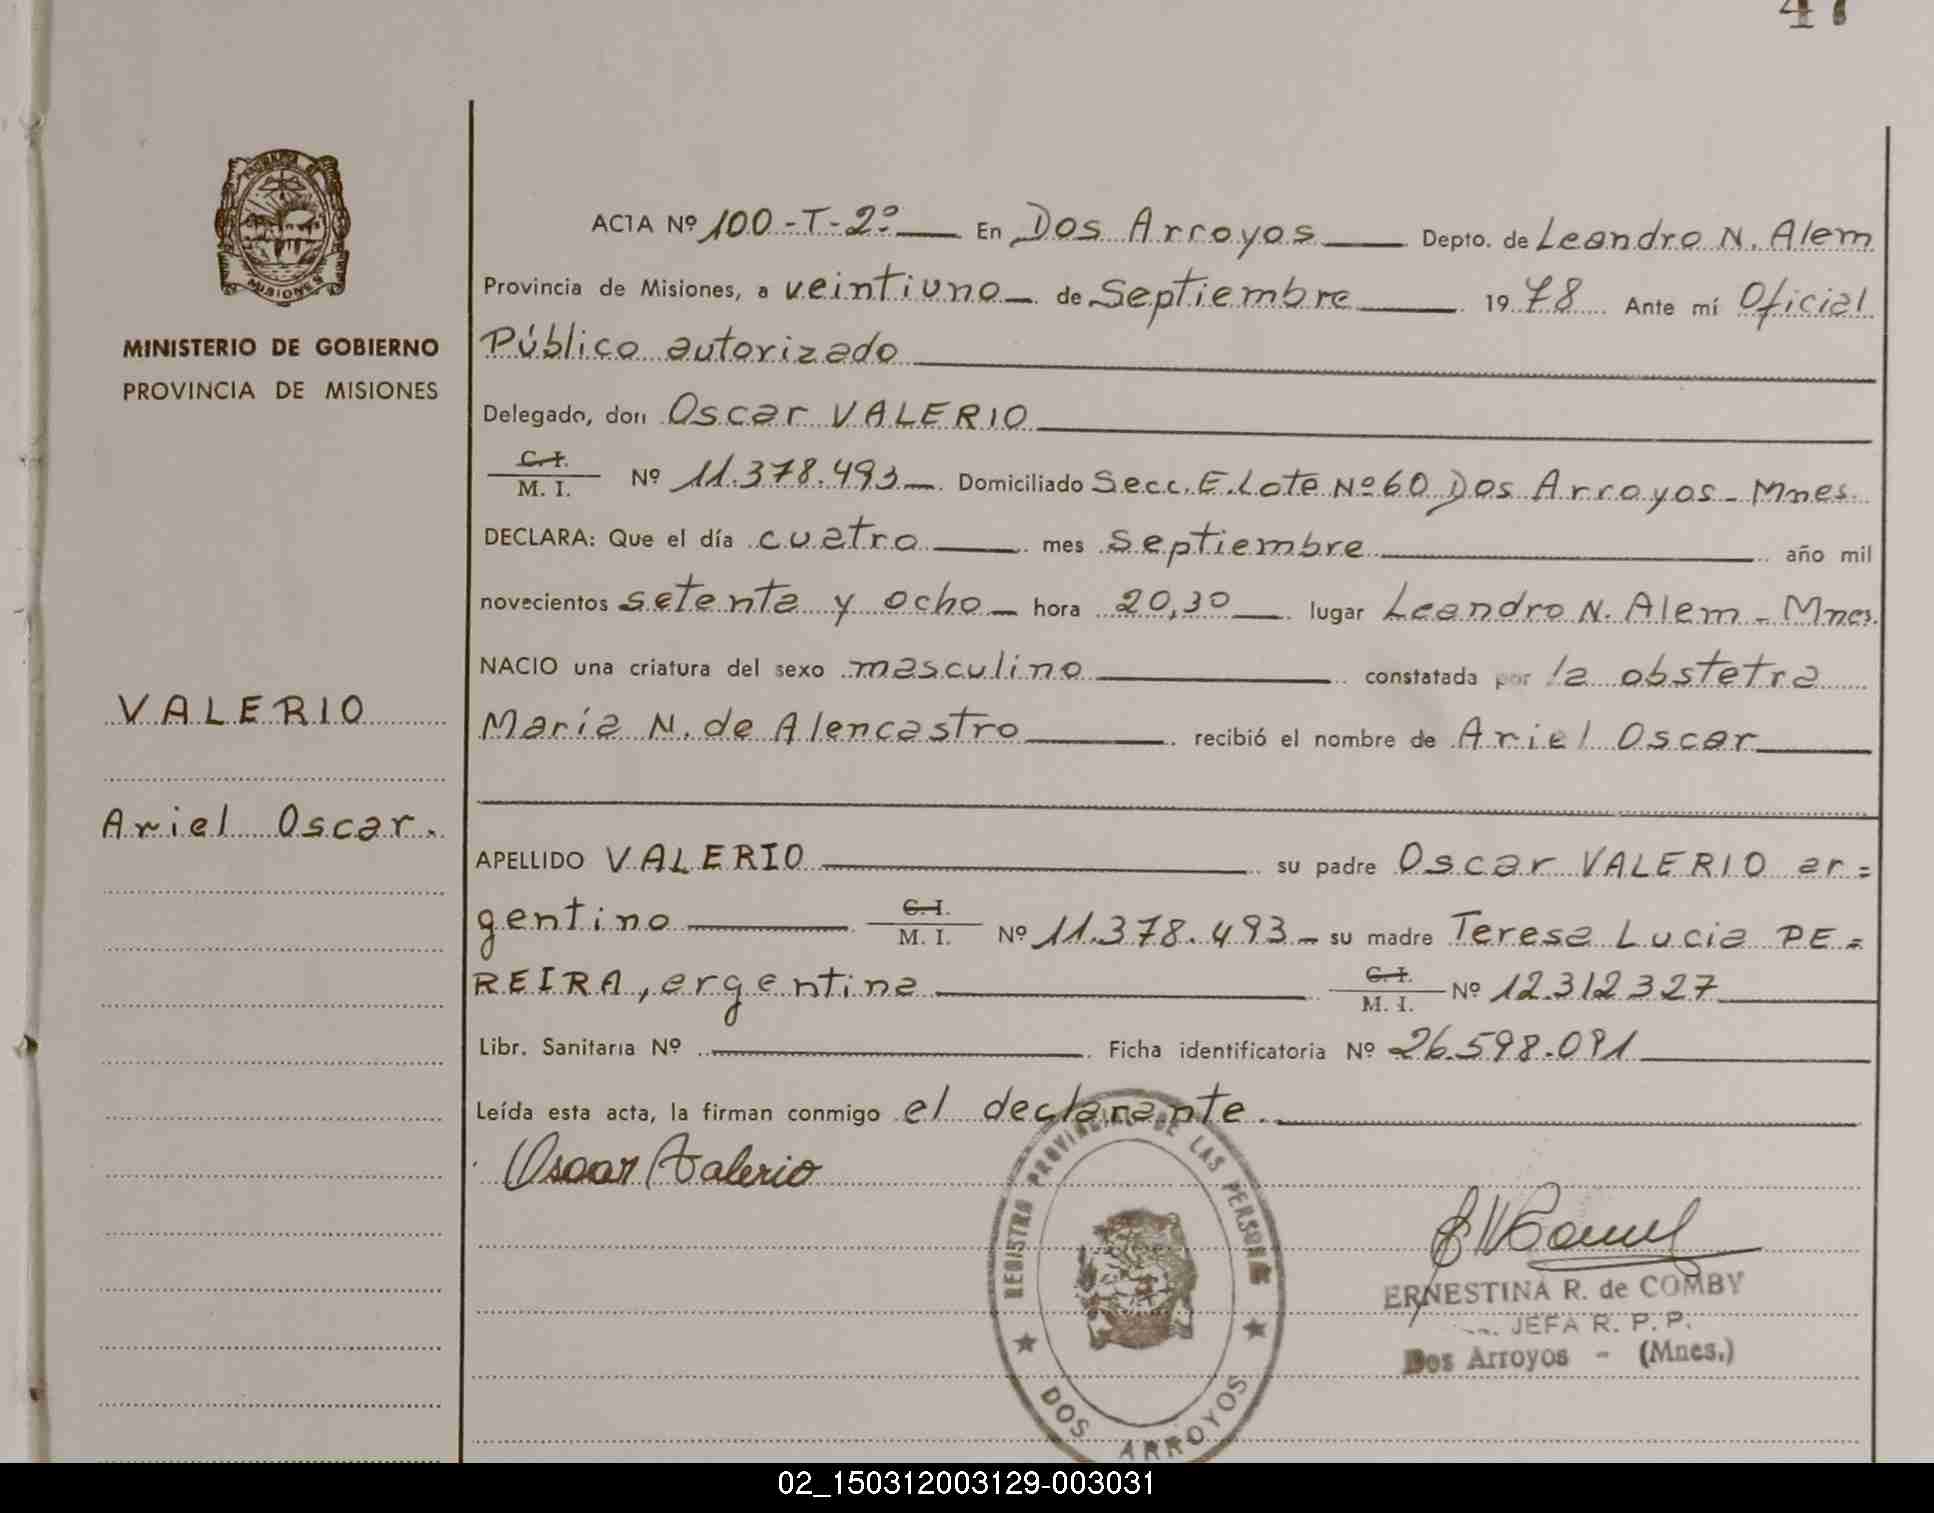 47
MISIONES
MINISTERIO DE GOBIERNO
PROVINCIA DE MISIONES
VALERIO
Ariel Oscar.
ACTA Nº 100-T-2º En Dos Arroyos Depto. de Leandro N. Alem
Provincia de Misiones, a veintiuno de Septiembre 1978 Ante mí Oficial
Público autorizado
Delegado, don Oscar VALERIO
C. I.
M. I. Nº 11.378.493 Domiciliado Secc. E. Lote Nº 60 Dos Arroyos - Mnes.
DECLARA: Que el día cuatro mes septiembre año mil
novecientos setenta y ocho hora 20,30 lugar Leandro N. Alem - Mnes.
NACIO una criatura del sexo masculino constatada por la obstetra
María N. de Alencastro recibió el nombre de Ariel Oscar
APELLIDO VALERIO su padre Oscar VALERIO ar=
gentino C. I. M. I. Nº 11.378.493 - su madre Teresa Lucia PE=
REIRA, argentina C. I. M. I. Nº 12.312327
Libr. Sanitaria Nº Ficha identificatoria Nº 26.598.091
Leída esta acta, la firman conmigo el declarante.
Oscar Valerio
REGISTRO PROVINCIAL DE LAS PERSONAS
DOS ARROYOS
ERNESTINA R. de COMBY
JEFA R. P. P.
Dos Arroyos - (Mnes.)
02_150312003129-003031